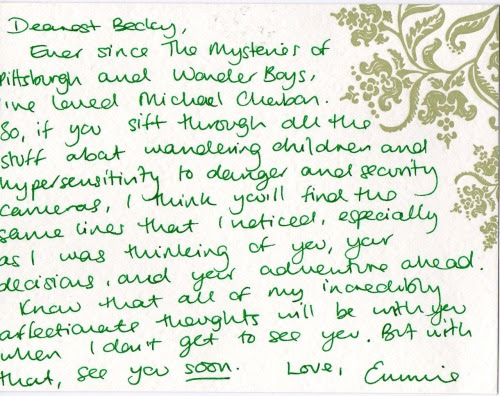 Dearest Becky,
Ever since The Mysteries of
Pittsburgh and Wonder Boys,
I've loved Michael Chabon.
So, if you sift through all the
stuff about wandering children and
hypersensitivity to danger and security
cameras, I think you'll find the
same lines that I noticed, especially
as I was thinking of you, your
decisions, and your adventure ahead.
Know that all of my incredibly
affectionate thoughts will be with you
when I don't get to see you. But with
that, see you soon. Love, Emmie